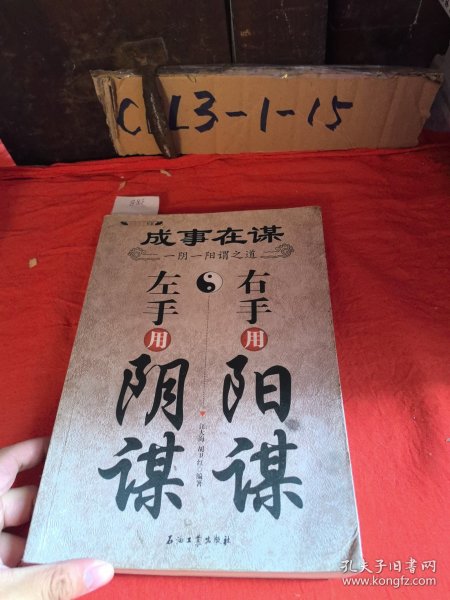 CL3-1-15
成事在谋
一阴一阳谓之道
右手用
阳谋
左手用
阴谋
编著
石油工业出版社
孔夫子旧书网
www.kongfz.com